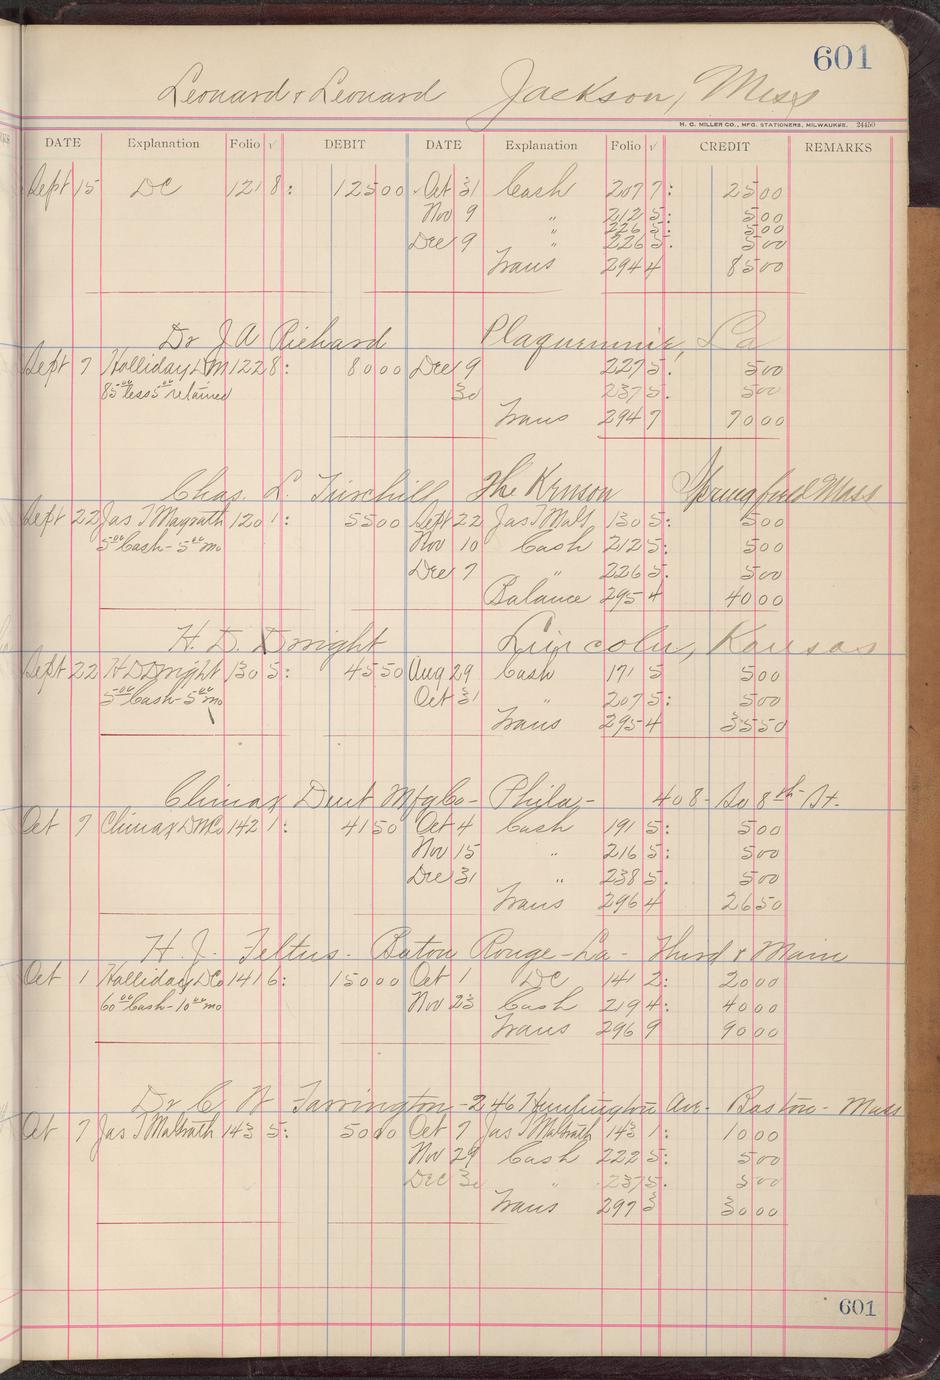 601
Leonard & Leonard Jackson, Miss
H. G. MILLER CO., MFG. STATIONERS, MILWAUKEE. 24450
DATE Explanation Folio √ DEBIT DATE Explanation Folio √ CREDIT REMARKS
Sept 15 DC 121 8: 125 00 Oct 31 Cash 207 7: 25 00
Nov 9 " 212 5: 5 00
" 226 5: 5 00
Dec 9 " 226 5. 5 00
Trans 294 4 85 00
Dr J A Richard Plaquemine, La
Sept 7 Holliday DM 122 8: 80 00 Dec 9 227 5. 5 00
85 00 less 5 00 retained 30 237 5. 5 00
Trans 294 7 70 00
Chas. L. The Springfield Mass
Sept 22 Jas T Magrath 120 1: 55 00 Sept 22 Jas T 130 5: 5 00
5 00 Cash - 5 00 mo Nov 10 Cash 212 5: 5 00
Dec 7 " 226 5. 5 00
Balance 295 4 40 00
H. D. Dwight Lincoln, Kansas
Sept 22 H D Dwight 130 5: 45 50 Aug 29 Cash 171 5 5 00
5 00 Cash - 5 00 mo Oct 31 " 207 5: 5 00
Trans 295 4 35 50
Climax Dent Mfg Co - Phila - 408 - So 8th St.
Oct 7 Climax DM Co 142 1: 41 50 Oct 4 Cash 191 5: 5 00
Nov 15 " 216 5: 5 00
Dec 31 " 238 5. 5 00
Trans 296 4 26 50
H. J. Feltus. Baton Rouge - La - Third & Main
Oct 1 Holliday D Co 141 6: 150 00 Oct 1 DC 141 2: 20 00
60 00 Cash - 10 00 mo Nov 23 Cash 219 4: 40 00
Trans 296 9 90 00
Dr C W Farrington - 246 Huntington Ave - Boston - Mass
Oct 7 Jas T 143 5: 50 00 Oct 7 Jas T 143 1: 10 00
Nov 29 Cash 222 5: 5 00
Dec 30 " 237 5. 5 00
Trans 297 3 30 00
601